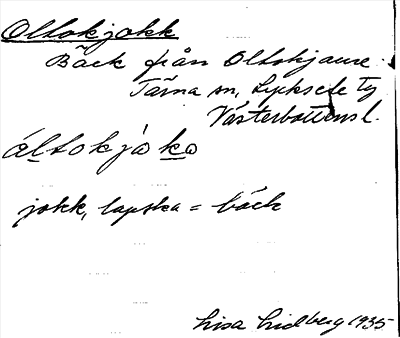 Oltokjokk
Bäck från Oltokjaure
Tärna sn, Lycksele Tg
Västerbottens l.
áltokjå ko
jokk, lapska = bäck
Lisa Lidberg 1935